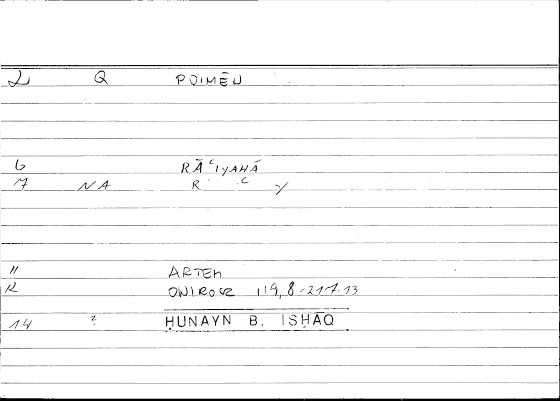 2 Q POIMĒN
6 RĀʿIYAHĀ
7 NA R ʿ Y
11 ARTEM
12 ONIROCR 119, 8-217.13
14 ? ḤUNAYN B. ISḤĀQ